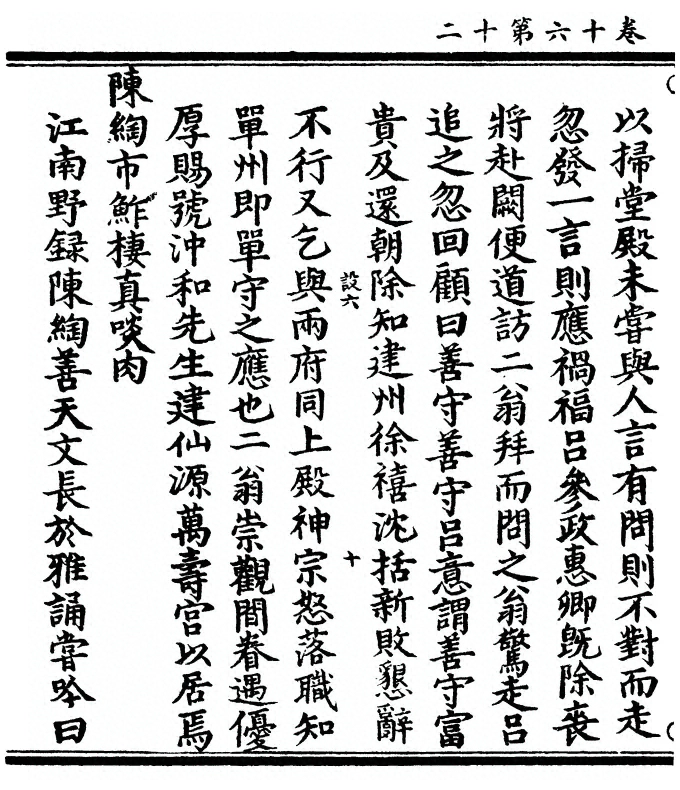 卷十六第十二
以掃堂殿未甞與人言有問則不對而走
忽發一言則應禍福呂參政惠卿旣除喪
將赴闕便道訪二翁拜而問之翁驚走呂
追之忽回顧曰善守善守呂意謂善守富
貴及還朝除知建州徐禧沈括新敗懇辭
設六
十
不行又乞與兩府同上殿神宗怒落職知
單州即單守之應也二翁崇觀間眷遇優
厚賜號沖和先生建仙源萬壽宫以居焉
陳綯市鮓棲真啖肉
江南野録陳綯善天文長於雅誦甞吟曰